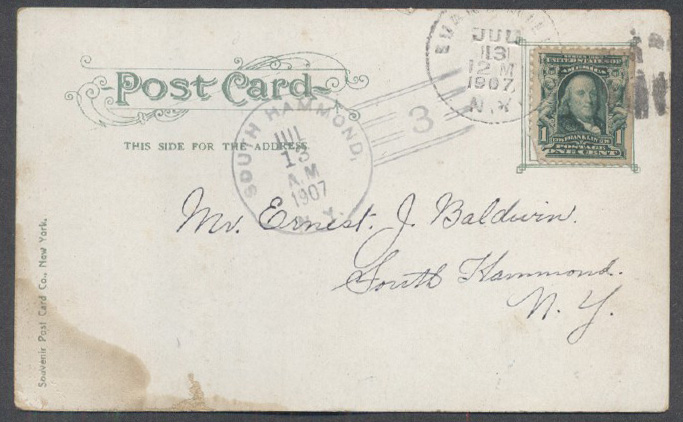 Post Card
THIS SIDE FOR THE ADDRESS.
SOUTH HAMMOND,
JUL
13
A.M
1907
N. Y.
3
JUL
13
12 M
1907
N.Y.
UNITED STATES OF
AMERICA
1 FRANKLIN 1
POSTAGE
ONE CENT
Mr. Ernest. J. Baldwin.
South Hammond.
N. Y.
Souvenir Post Card Co., New York.